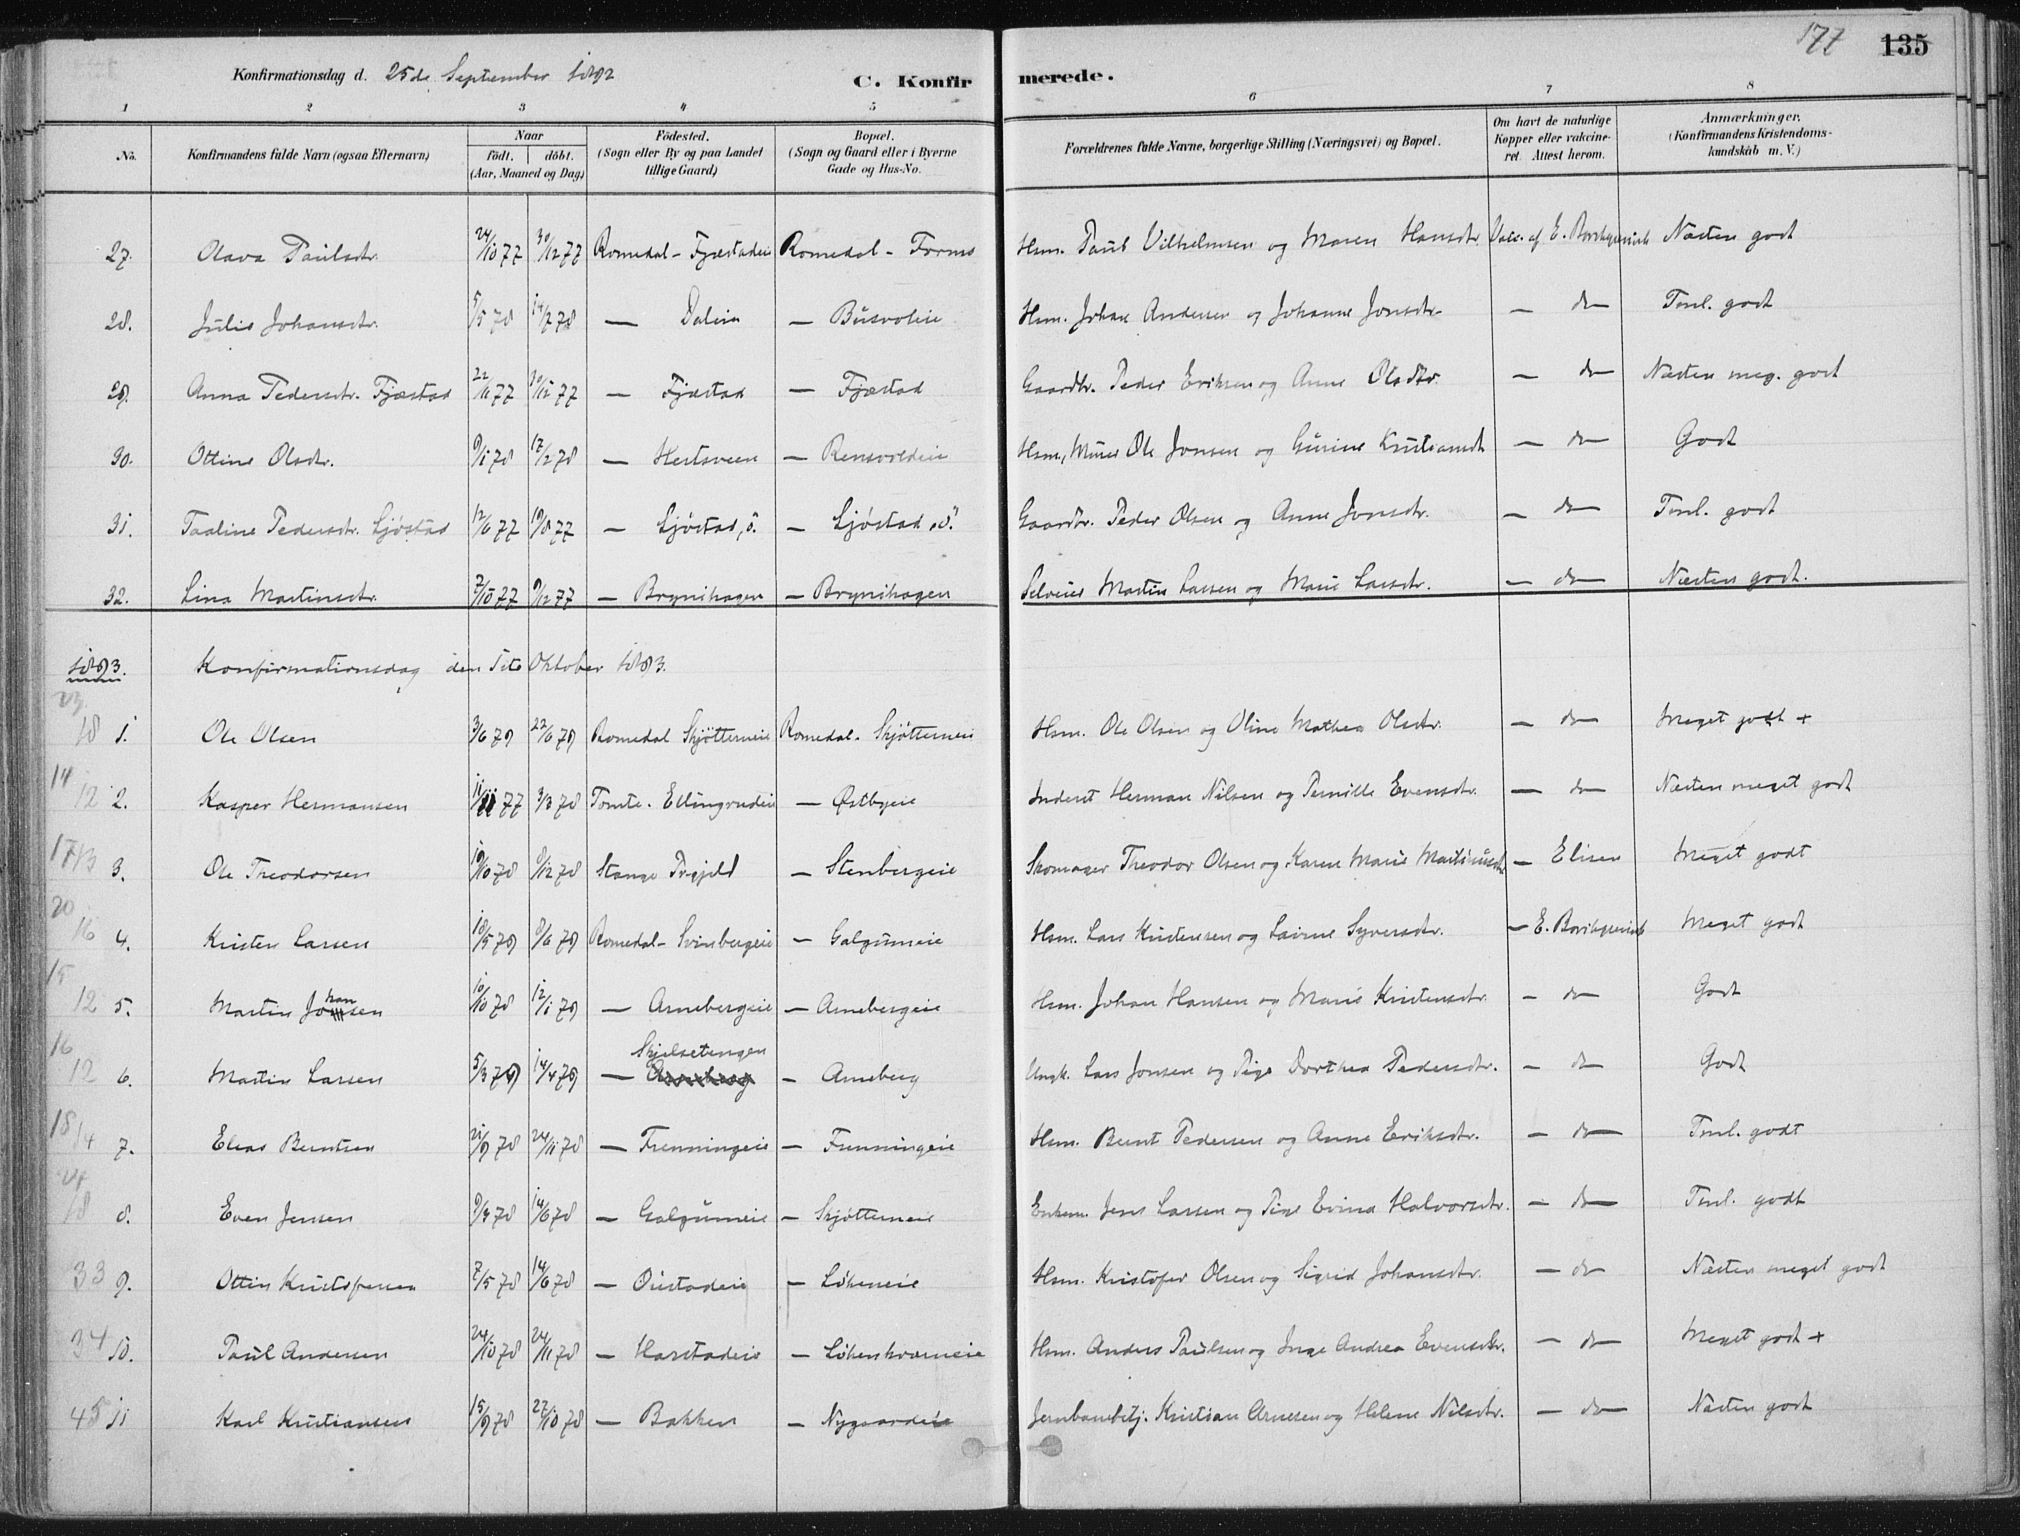 177 135
Konfirmationsdag d. 25de September 1892
C. Konfirmerede.
1 2 3 4 5 6 7 8
No. Konfirmandens fulde Navn (ogsaa Efternavn) Naar födt. döbt. (Aar, Maaned og Dag) Födested. (Sogn eller By og paa Landet tillige Gaard) Bopæl. (Sogn og Gaard eller i Byerne Gade og Hus-No. Forældrenes fulde Navne, borgerlige Stilling (Næringsvei) og Bopæl. Om havt de naturlige Kopper eller vakcineret. Attest herom. Anmærkninger. (Konfirmandens Kristendomskundskab m. V.)
27. Olava Paulsdtr. 24/10 77 30/12 77 Romedal - Fjæstadeie Romedal - Horns Hsm. Paul Vilhelmsen og Maren Hansdtr. Vacc. af E. Borchgrevink Næsten godt
28. Julie Johansdtr. 5/5 78 14/7 78 — Daleie — Busvoleie Hsm. Johan Andersen og Johanne Jonsdtr. — do — Teml. godt
29. Anna Pedersdtr. Fjæstad 22/11 77 30/12 77 — Fjæstad — Fjæstad Gaardbr. Peder Eriksen og Anne Olsdtr. — do — Næsten meg. godt
30. Ottine Olsdtr. 9/1 78 17/2 78 — Hertsveen — Rensvoldeie Hsm., Murer Ole Jonsen og Gurine Kristiansdt. — do — Godt
31. Paaline Pedersdtr. Ljøstad 12/6 77 19/8 77 — Ljøstad, ö. — Ljøstad, ö. Gaardbr. Peder Olsen og Anne Jonsdtr. — do — Teml. godt
32. Lina Martinsdtr. 7/10 77 9/12 77 — Brynihagen — Brynihagen Selveier Martin Larsen og Marie Larsdtr. — do — Næsten godt.
1893. Konfirmationsdag den 1ste Oktober 1893.
23
18 1. Ole Olsen 3/6 79 22/6 79 Romedal Skjötterneie Romedal - Skjötterneie Hsm. Ole Olsen og Oline Mathea Olsdtr. — do — Meget godt +
14
12 2. Kasper Hermansen 11/11 77 3/3 78 Tomte - Ellingrudeie — Østbyeie Inderst Herman Nilsen og Pernille Evensdtr. — do — Næsten meget godt
17 13 3. Ole Theodorsen 19/10 78 8/12 78 Stange Prgjeld — Stenbergeie Skomager Theodor Olsen og Karen Marie Martinusdtr. — Elisen Meget godt
20
16 4. Kristen Larsen 18/5 79 8/6 79 Romedal - Svinbergeie — Galgumeie Hsm. Lars Kristensen og Lavine Syversdtr. — E. Borchgrevink Meget godt
15
12 5. Martin Johansen 10/10 78 12/1 79 — Arnebergeie — Arnebergeie Hsm. Johan Hansen og Marie Kristensdtr. — do — Godt
16
12 6. Martin Larsen 5/3 79 14/4 79 — Skjelsetengen — Arneberg Ungk. Lars Jonsen og Pige Dorthea Pedersdtr. — do — Godt
18 14 7. Elias Berntsen 21/9 78 24/11 78 — Frenningeie — Frenningeie Hsm. Bernt Pedersen og Anne Eriksdtr. — do — Teml. godt
24
18 8. Even Jensen 9/4 78 14/6 78 — Galgumeie — Skjötterneie Enkem. Jens Larsen og Pige Evina Halvorsdtr. — do — Teml. godt
33 9. Ottin Kristofersen 7/5 78 14/6 78 — Oustadeie — Løkeneie Hsm. Kristofer Olsen og Sigrid Johansdtr. — do — Næsten meget godt
34 10. Paul Andersen 24/10 78 24/11 78 — Harstadeie — Løkenkværneie Hsm. Anders Paulsen og Inge Andrea Evensdtr. — do — Meget godt +
45 11 Karl Kristiansen 15/9 78 27/10 78 — Bakken — Nygaardeie Jernbanebetj. Kristian Arnesen og Helene Nilsdtr. — do — Næsten godt